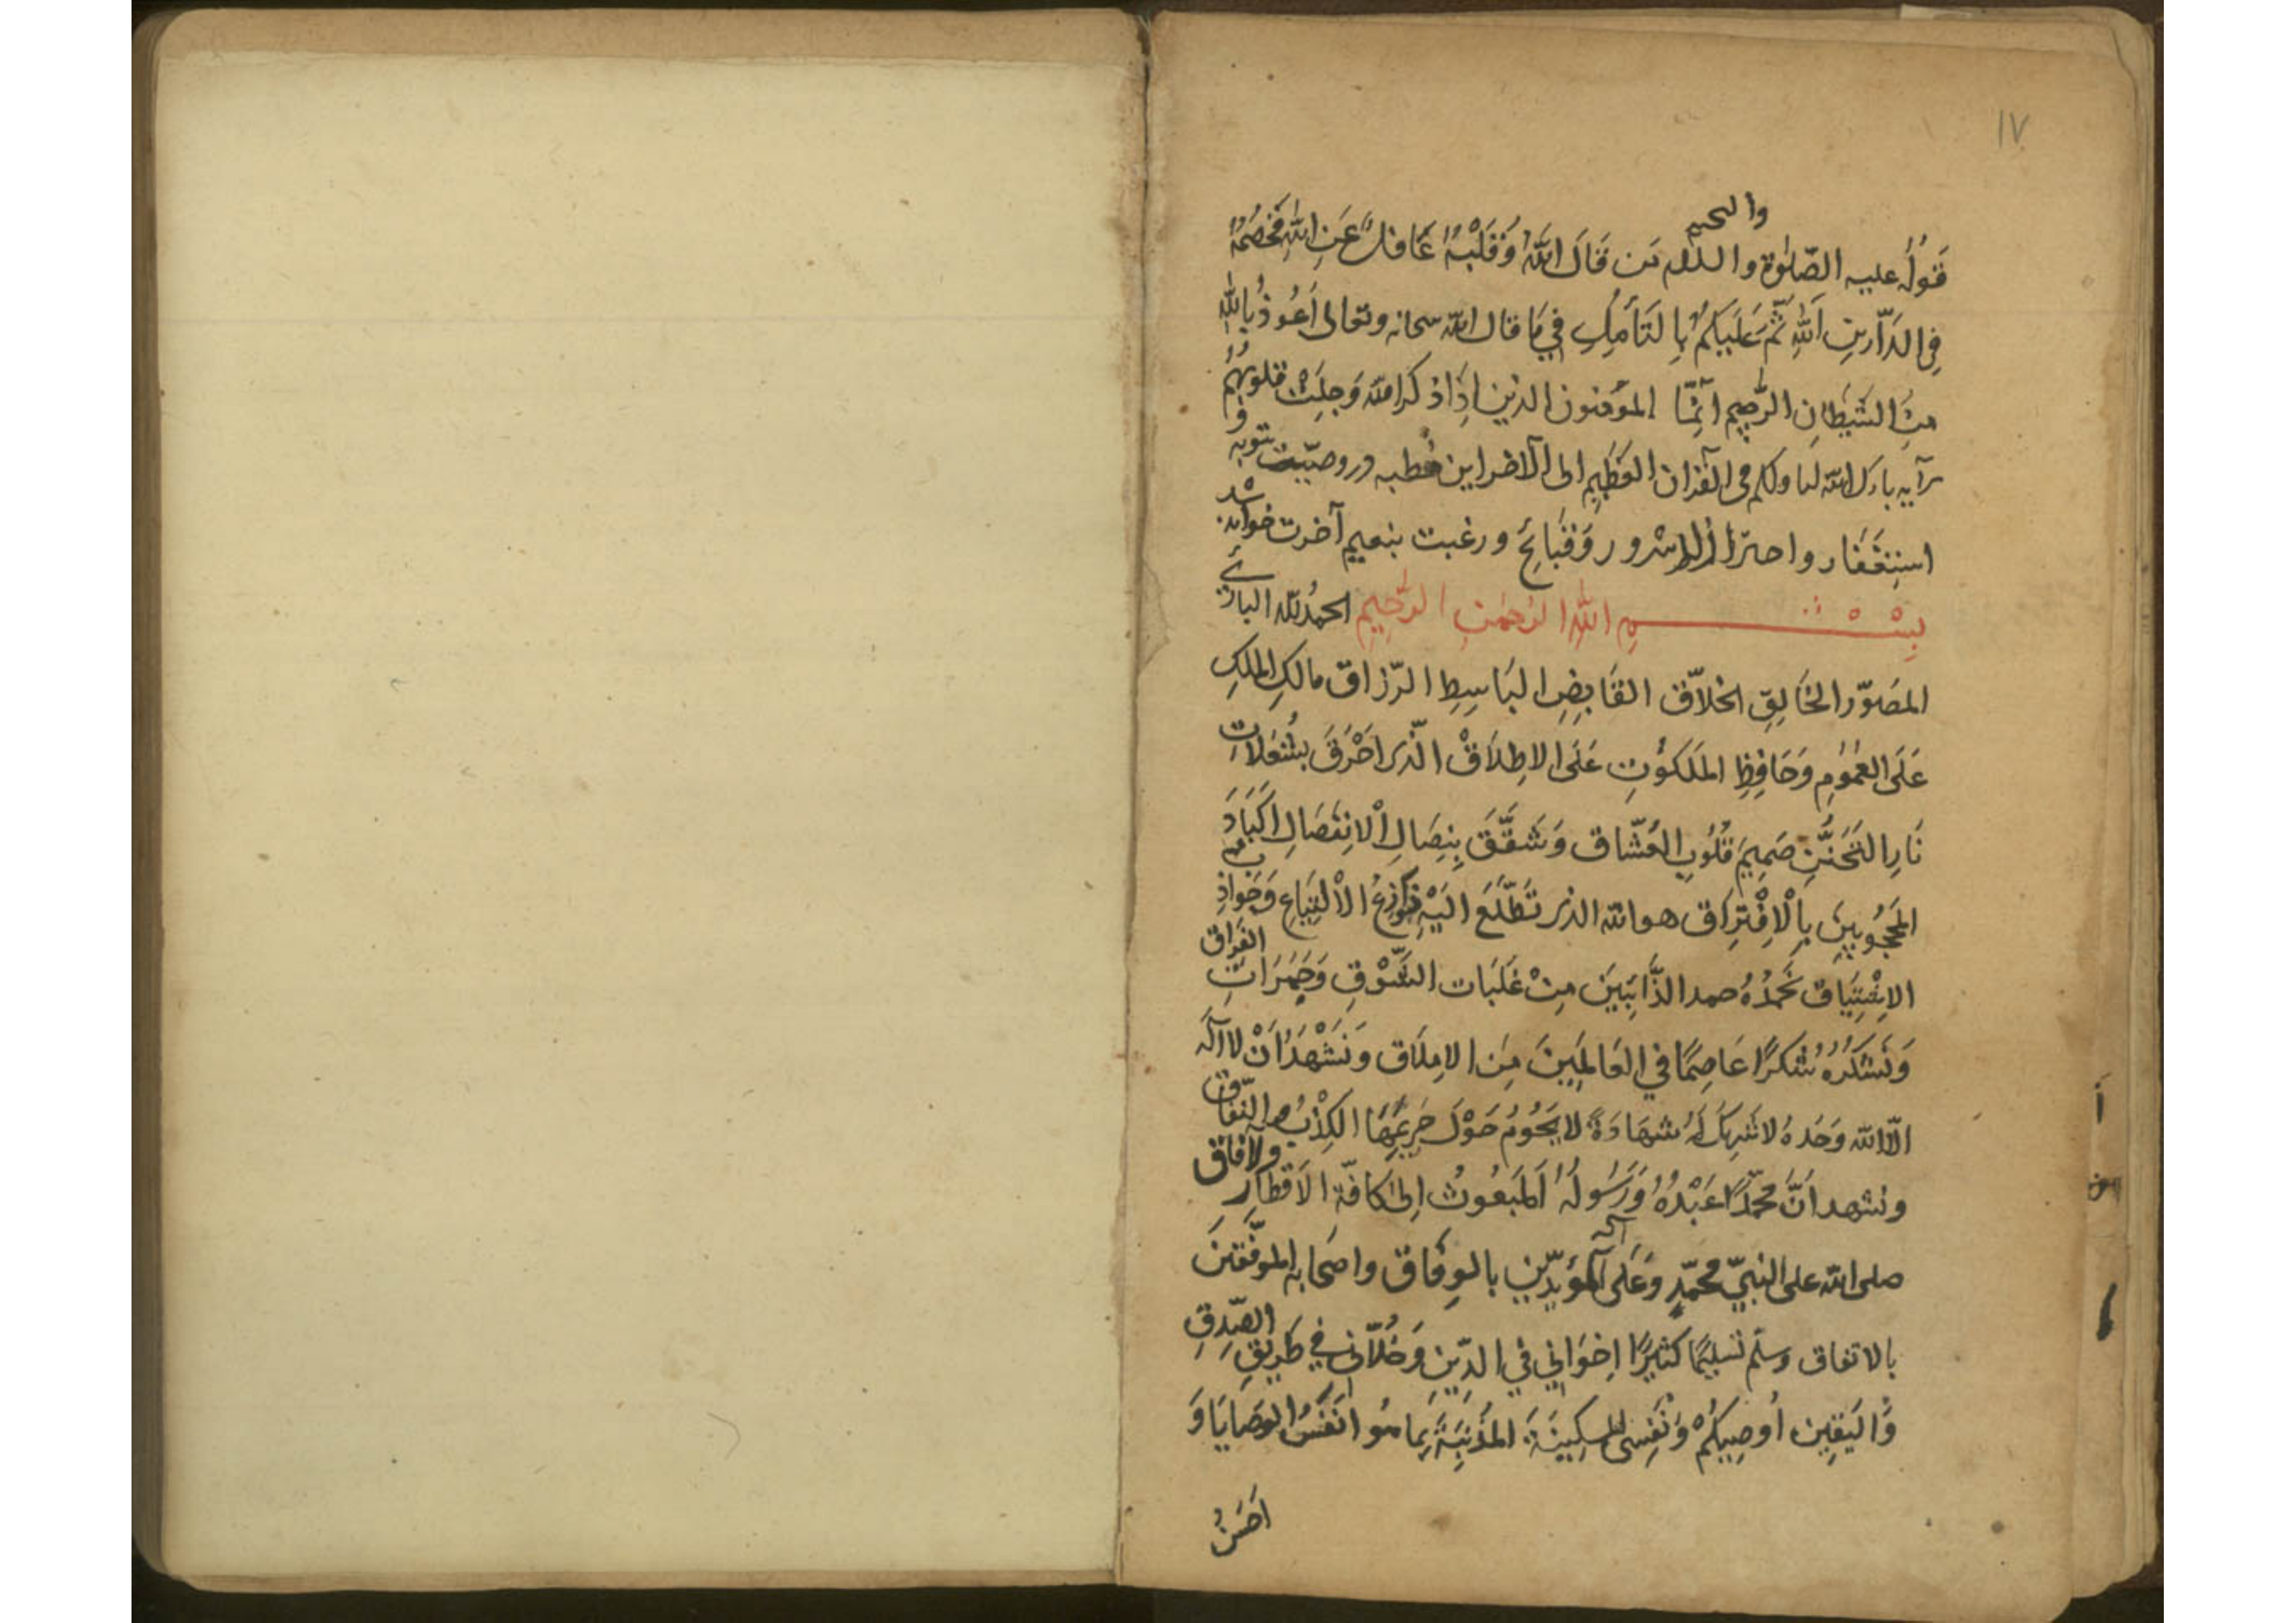 ١٧
والتحیه
قَولُهُ علیه الصّلوٰة والسلام مَن قَالَ اللّٰهُ وَقَلْبُهُ غَافِلٌ عَنِ اللّٰهِ فَخَصْمُهُ
فِی الدّارینِ اللّٰهِ ثُمَّ عَلَیکُم بِالتَأمُلِ فِي مَا قال اللّٰه سبحانه وتعالی اَعُوذُ بِاللّٰهِ
مِنَ الشَیطَانِ الرَّجِیمِ اِنّمَا المؤمنون الذین اِذَا ذکر اللّٰه وَجِلَتْ قلوبُهُم
آیه بارك اللّٰه لنا ولکم فی القرآن العَظِیمِ الی الآخر این خطبه در وصیّت توبه و
استِغفَار واحتراز از شرور وَقَبَائِح ورغبت بنعیم آخرت خوانده شد
بِسْــــــــمِ اللّٰهِ الرَحمٰنِ الرَّحِیمِ الحمدُ للّٰه البارئِ
المصَوّر الخَالِقِ الخلاّق القَابِضِ البَاسِطِ الرّزاق مالكِ الملكِ
عَلَی العُمُومِ وَحَافِظِ المَلَکُوتِ عَلَی الاِطلَاقْ الّذی اَحْرَقَ بشُعَلاتِ
نَارِ التَحَنُّنِ صَمِیمَ قُلُوبِ العُشّاق وَشَقَّقَ بِنِصَالِ الْانفِصَالِ اَکبَادَ
المَحجُوبِینَ بِالْاِفْتِرَاق هو اللّٰه الذی تَطَّلَعَ اِلَیْهِ نَوَازِعُ الْاِلْتِیَاعِ وَجَوَاذِبُ
الاِشْتِیَاق نَحمَدُهُ حمد الذَّائِبِینَ مِنْ غَلَبَات الشَّوْقِ وَجَمَرَاتِ الفِرَاق
وَنَشکُرُهُ شُکرًا عَاصِمًا فِي العَالَمِینَ مِنَ الاِملَاق وَنَشْهَدُ اَنْ لاآلَه
الّا اللّٰه وَحدَهُ لا شَرِیكَ لَهُ شهَادَةً لا یَحُومُ حَوْلَ حَرِیمِهَا الکِذْبُ والنِّفَاق
ونشهد اَنَّ مُحَمّدًا عَبْدُهُ وَرَسُولُهُ المَبعُوثُ اِلیٰ کافّة الاَقطَارِ والآفاق
صلی اللّٰه علی النبیّ مُحمّدٍ وَعَلَی آله المؤیدّین بالوِفَاق واصحَابِهِ الموفّقِینَ
بالاتفاق وسلّم تَسلیمًا کَثیرًا اِخوَانِي فِي الدِّینِ وَخُلّاَنِی فِي طَرِیقِ الصِّدقِ
وَالیَقِین اُوصِیکُمْ وَنَفسِی المسکِینَةَ المُذنِبَةَ بِما هُوَ اَنفَسُ الوَصَایَا وَ
اَحسَنُ